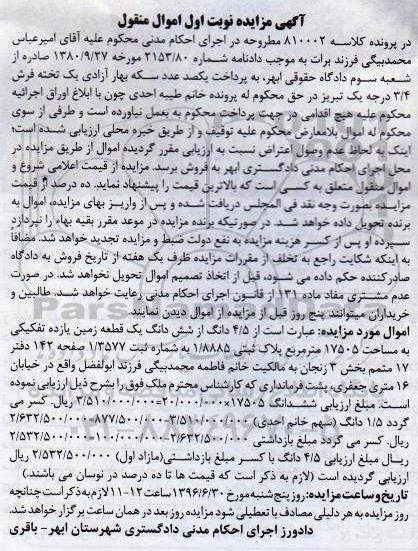 آگهی مزایده نوبت اول اموال منقول
در پرونده کلاسه ۸۱۰۰۰۲ مطروحه در اجرای احکام مدنی محکوم علیه آقای امیرعباس
محمدبیگی فرزند برات به موجب دادنامه شماره ۲۱۵۳/۸۰ مورخه ۱۳۸۰/۹/۲۷ صادره از
شعبه سوم دادگاه حقوقی ابهر، به پرداخت یکصد عدد سکه بهار آزادی یک تخته فرش
۳/۴ درجه یک تبریز در حق محکوم له پرونده خانم طیبه احدی چون با ابلاغ اوراق اجرائیه
محکوم علیه هیچ اقدامی در جهت پرداخت محکوم به بعمل نیاورده است و طرفی از سوی
محکوم له اموال بلامعارض محکوم علیه توقیف و از طریق خبره محلی ارزیابی شده است؛
اینک به لحاظ عدم وصول اعتراض نسبت به ارزیابی مقرر گردیده اموال از طریق مزایده در
محل اجرای احکام مدنی دادگستری ابهر به فروش برسد. مزایده از قیمت اعلامی شروع و
اموال منقول متعلق به کسی است که بالاترین قیمت را پیشنهاد نماید. ده درصد از قیمت
مزایده بصورت وجه نقد فی المجلس دریافت شده و پس از واریز بهای مزایده، اموال به
برنده تحویل داده خواهد شد. در صورتیکه برنده مزایده در موعد مقرر بقیه بهاء را نپردازد
سپرده او پس از کسر هزینه مزایده به نفع دولت ضبط و مزایده تجدید خواهد شد. مضافاً
به اینکه شکایت راجع به تخلف از مقررات مزایده ظرف یک هفته از تاریخ فروش به دادگاه
صادرکننده حکم داده می شود، قبل از اتخاذ تصمیم اموال تحویل نخواهد شد. در صورت
عدم مشتری مفاد ماده ۱۳۱ از قانون اجرای احکام مدنی رعایت خواهد شد. طالبین و
خریداران میتوانند پنج روز قبل از مزایده از اموال دیدن نمایند.
اموال مورد مزایده: عبارت است از ۴/۵ دانگ از شش دانگ یک قطعه زمین یازده تفکیکی
به مساحت ۱۷۵۰۵ مترمربع پلاک ثبتی ۱/۸۸۸۵ به شماره ثبت ۱/۳۵۷۷ صفحه ۱۴۲ دفتر
۱۷ متمم بخش ۳ زنجان به مالکیت خانم فاطمه محمدبیگی فرزند ابولفضل واقع در خیابان
۱۶ متری جعفری، پشت فرمانداری که کارشناس محترم ملک فوق را بشرح ذیل ارزیابی نموده
است. مبلغ ارزیابی ششدانگ ۱۷۵۰۵×۲۰/۰۰۰/۰۰۰=۳/۵۱۰/۰۰۰/۰۰۰ ریال. کسر می
گردد ۱/۵ دانگ (سهم خانم احدی) ۳/۵۱۰/۰۰۰/۰۰۰-۸۷۷/۵۰۰/۰۰۰=۲/۶۳۲/۵۰۰/۰۰۰
ریال. کسر می گردد مبلغ بازداشتی ۲/۶۳۲/۵۰۰/۰۰۰-۱۰۰/۰۰۰/۰۰۰=۲/۵۳۲/۵۰۰/۰۰۰
ریال مبلغ ارزیابی ۴/۵ دانگ با کسر مبلغ بازداشتی(مازاد اول) ۲/۵۳۲/۵۰۰/۰۰۰ ریال
ارزیابی گردیده است (لازم به ذکر است که قیمت ها تا ده درصد در نوسان می باشند.)
تاریخ و ساعت مزایده: روز پنج شنبه مورخ ۱۳۹۶/۶/۳۰ ساعت ۱۲-۱۱ لازم به ذکر است چنانچه
روز مزایده به هر دلیلی مصادف با تعطیلی شود مزایده روز بعد در همان ساعت برگزار خواهد شد.
دادورز اجرای احکام مدنی دادگستری شهرستان ابهر- باقری